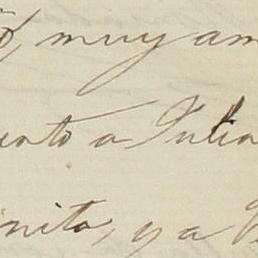 muy am
ento a Julia
nito, y a